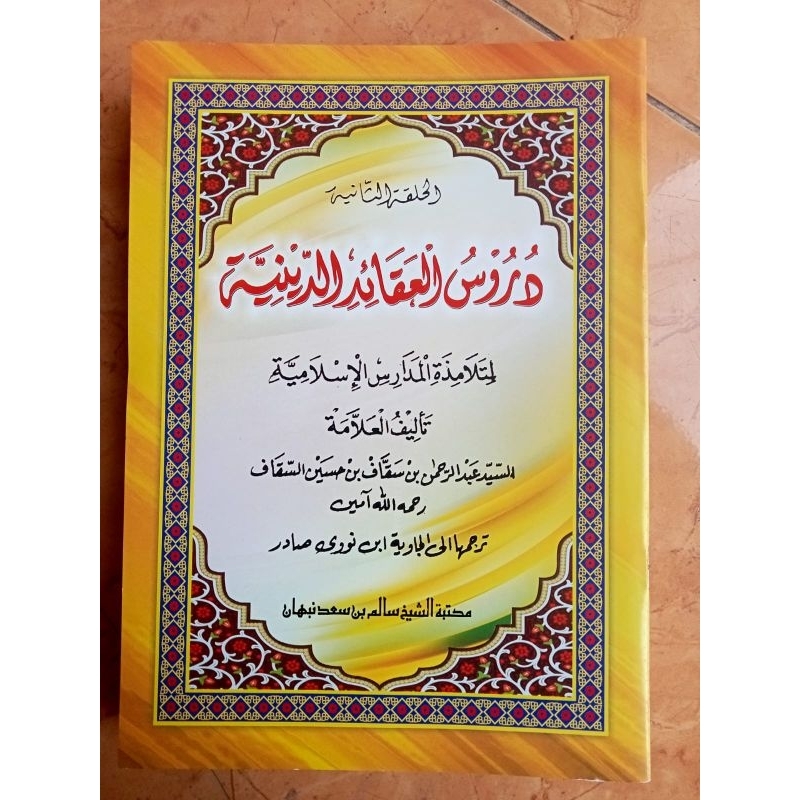 الحلقة الثانية
دُرُوْسُ الْعَقَائِدِ الدِّيْنِيَّة
لِتَلَامِذَةِ الْمَدَارِسِ الْإِسْلَامِيَّةِ
تَأْلِيْفُ الْعَلَّامَة
السيّد عبد الرحمن بن سقّاف بن حسين السقاف
رحمه الله آمين
ترجمها الى الجاوية ابن نووي صادر
مكتبة الشيخ سالم بن سعد نبهان